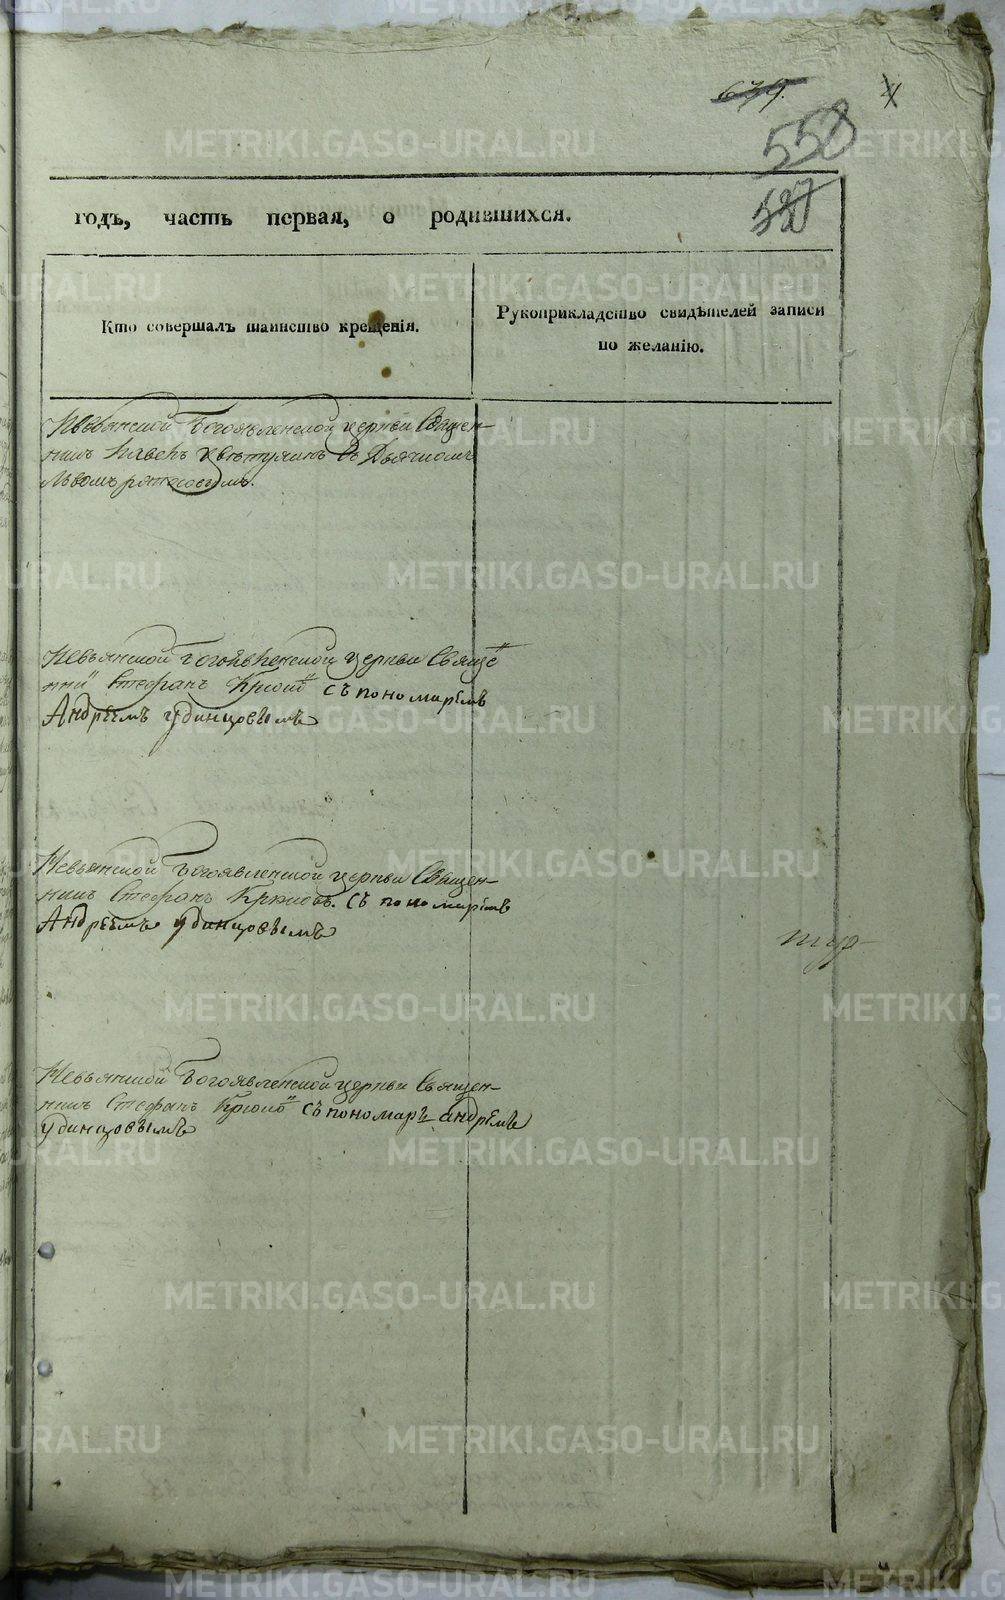 639.
4
558
527
годъ, часть первая, о родившихся.
Кто совершалъ таинство крещенія.
Рукоприкладство свидѣтелей записи
по желанію.
Невьянской Богоявленской церкви Священ-
никъ Павелъ съ Дьячкомъ
Львомъ
Невьянской Богоявленской церкви Священ
ни Стефанъ Крюко съ пономаремъ
Андреемъ удинцовымъ
Невьянской Богоявленской церкви Священ-
никъ Стефанъ Крюковъ. съ пономаремъ
Андреемъ удинцовымъ
Невьянской Богоявленской церкви Священ-
никъ Стефанъ Крюко съ пономаръ андремъ
удинцовымъ
METRIKI.GASO-URAL.RU